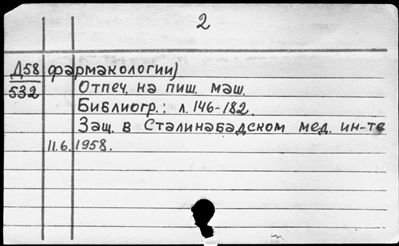 2
Д58 фармакологии)
532 Отпеч. на пиш. маш.
Библиогр.: л. 146-182.
Защ. в Сталинабадском мед. ин-те
11.6.1958.